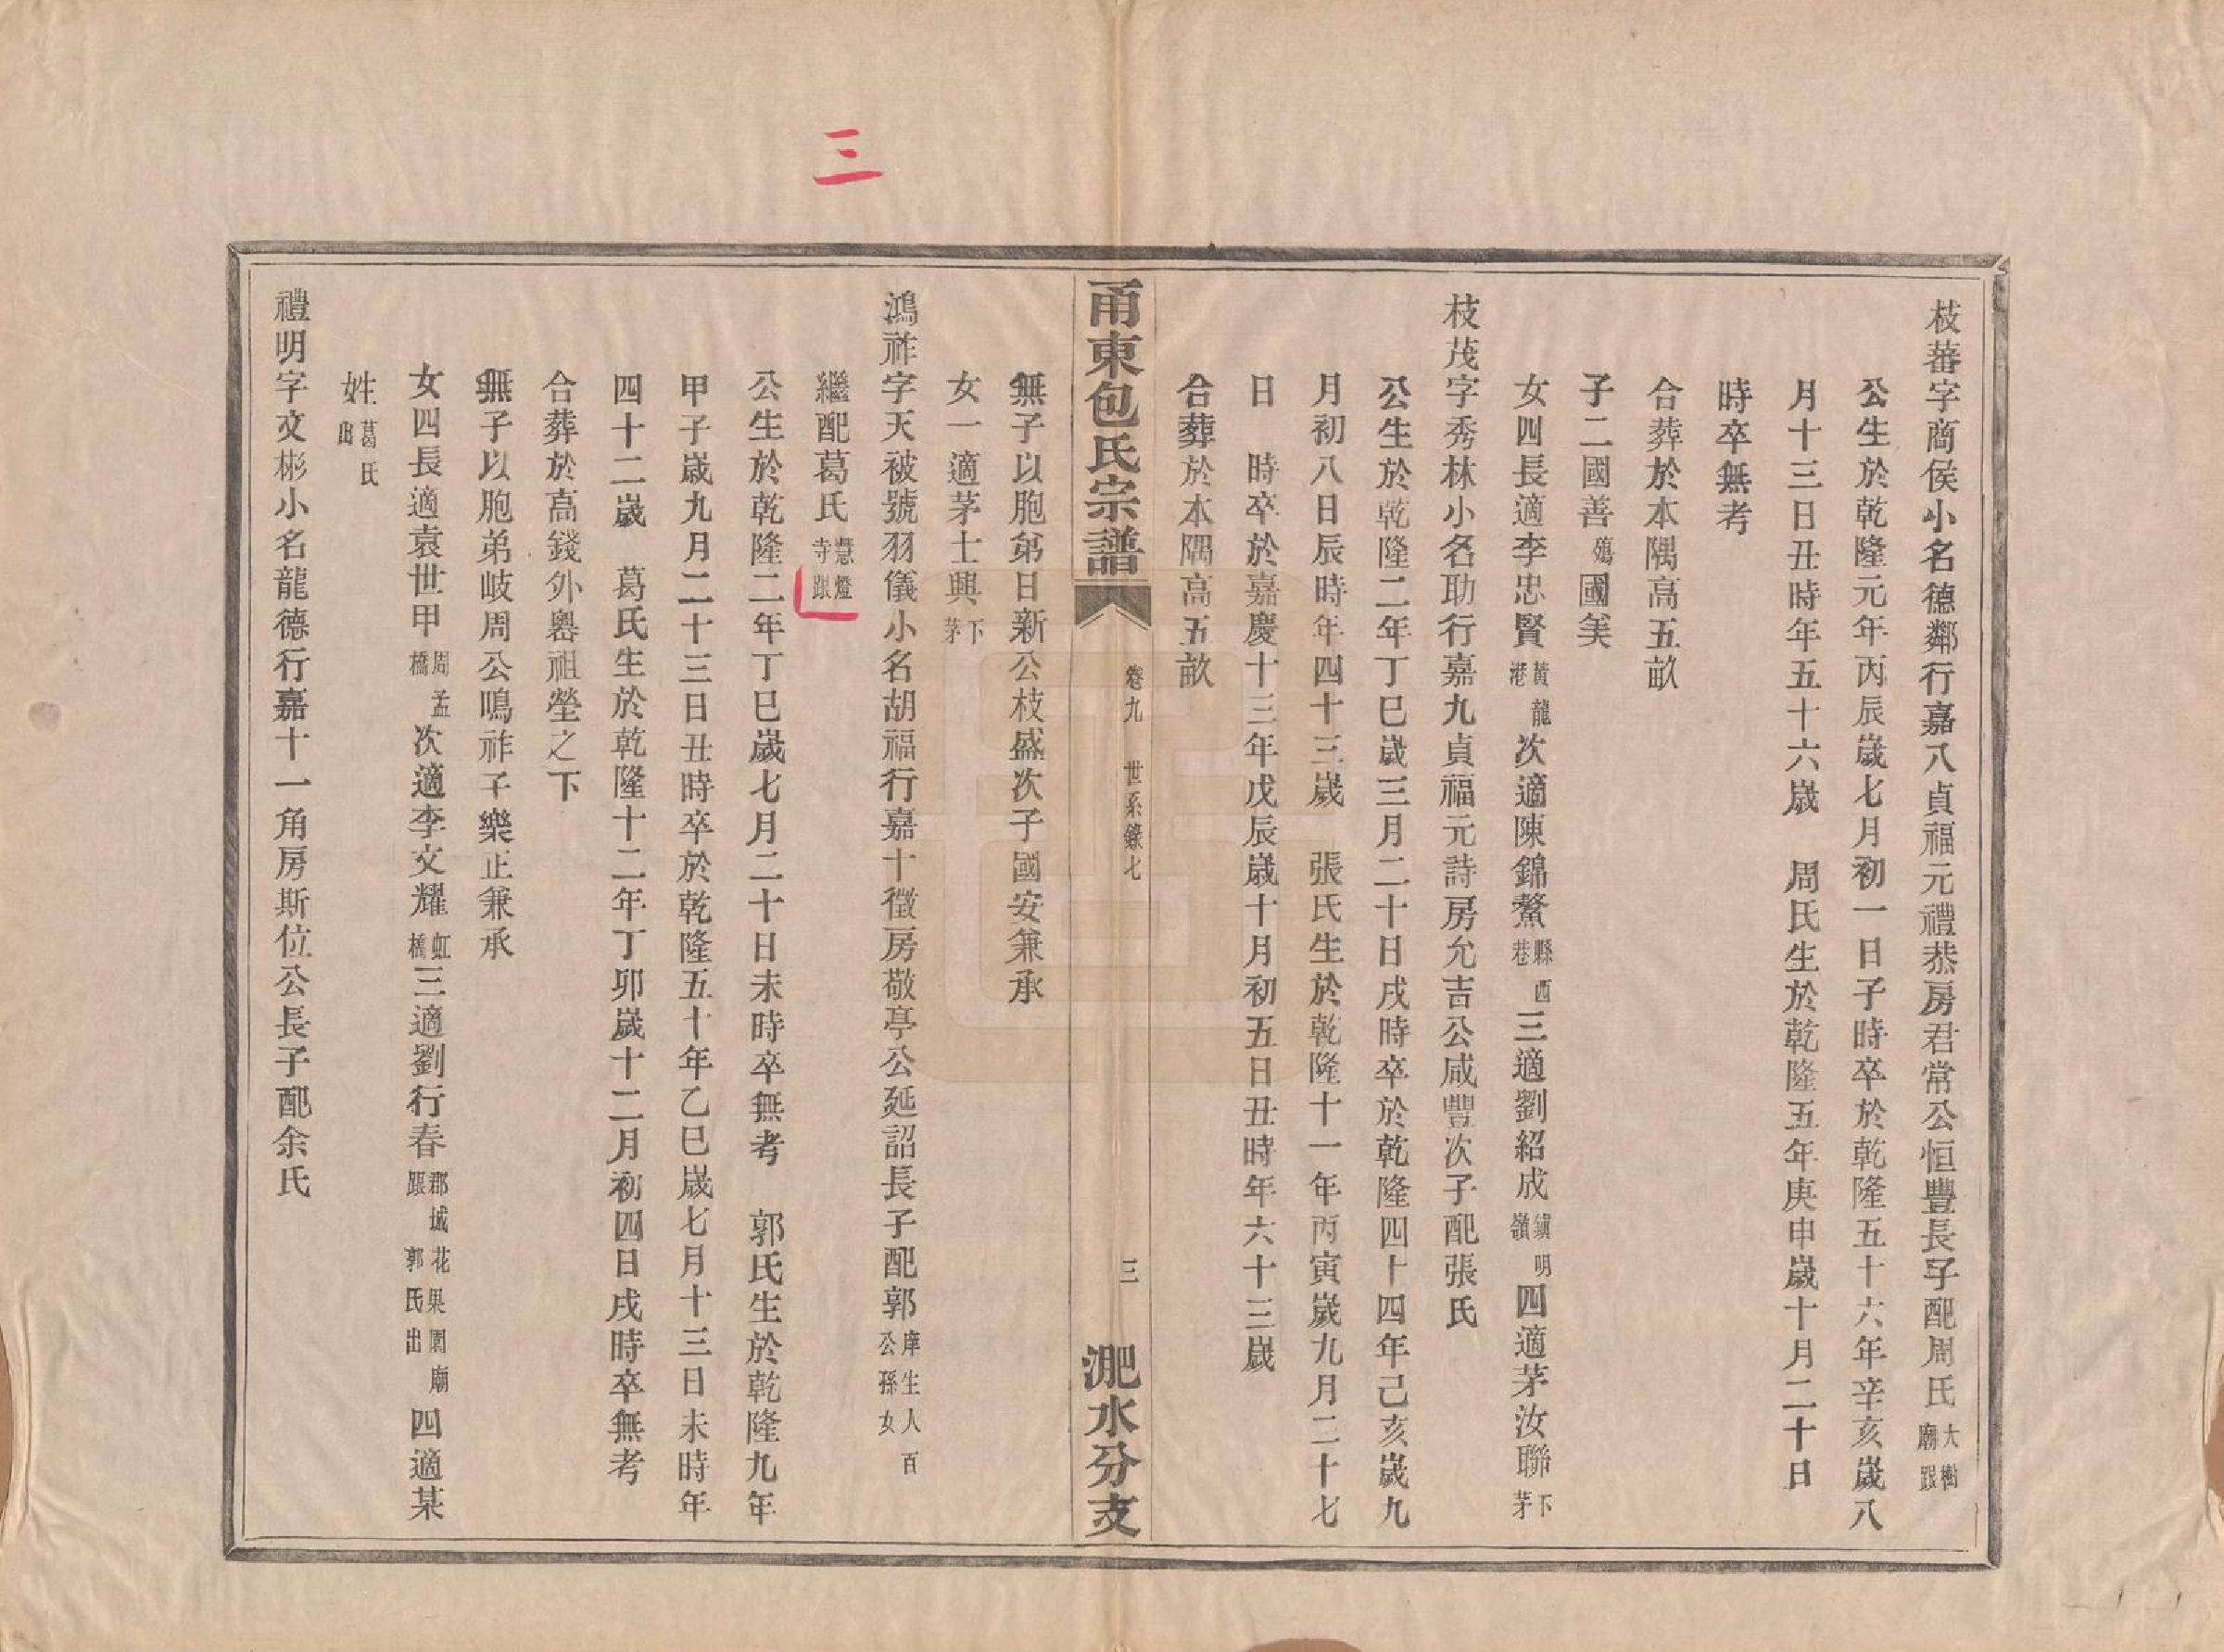 三
枝蕃字商侯小名德鄰行嘉八貞福元禮恭房君常公恒豐長子配周氏大樹廟跟
公生於乾隆元年丙辰歲七月初一日子時卒於乾隆五十六年辛亥歲八
月十三日丑時年五十六歲　周氏生於乾隆五年庚申歲十月二十日
時卒無考
合葬於本隅高五畝
子二國善殤國美
女四長適李忠賢黃龍港次適陳錦鰲縣西巷三適劉紹成鎮明嶺四適茅汝聯下茅
枝茂字秀林小名助行嘉九貞福元詩房允吉公咸豐次子配張氏
公生於乾隆二年丁巳歲三月二十日戌時卒於乾隆四十四年己亥歲九
月初八日辰時年四十三歲　張氏生於乾隆十一年丙寅歲九月二十七
日　時卒於嘉慶十三年戊辰歲十月初五日丑時年六十三歲
合葬於本隅高五畝
甬東包氏宗譜　卷九　世系錄七　三　淝水分支
無子以胞弟日新公枝盛次子國安兼承
女一適茅士興下茅
鴻祚字天被號羽儀小名胡福行嘉十徵房敬亭公延詔長子配郭庠生人百公孫女
繼配葛氏慧燈寺跟
公生於乾隆二年丁巳歲七月二十日未時卒無考　郭氏生於乾隆九年
甲子歲九月二十三日丑時卒於乾隆五十年乙巳歲七月十三日未時年
四十二歲　葛氏生於乾隆十二年丁卯歲十二月初四日戌時卒無考
合葬於高錢外嶴祖塋之下
無子以胞弟岐周公鳴祚子樂正兼承
女四長適袁世甲周孟橋次適李文耀虹橋三適劉行春郡城花果園廟跟郭氏出四適某
姓葛氏出
禮明字文彬小名龍德行嘉十一角房斯位公長子配余氏